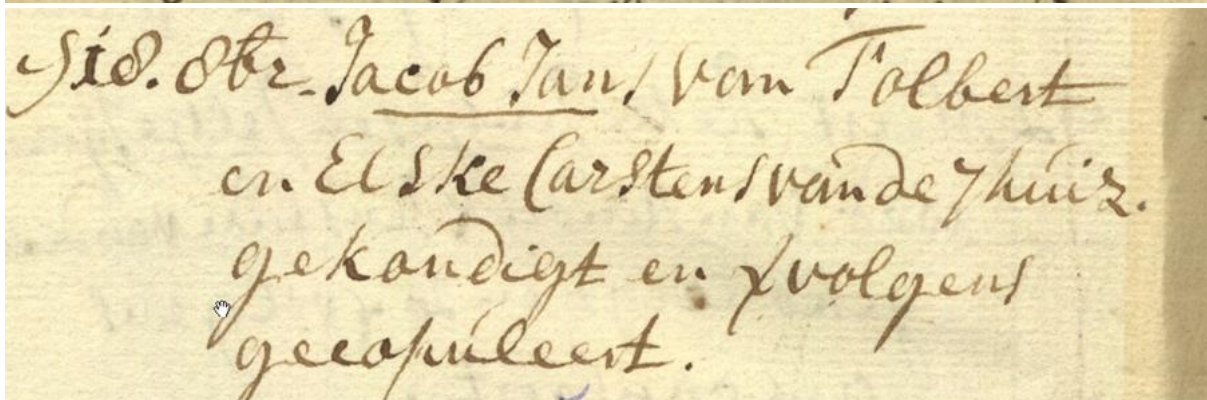 d' 18. 8br. Jacob Jans van Tolbert
en Elske Carstens van de 7 huiz.
gekondigt en vervolgens
gecopuleert.